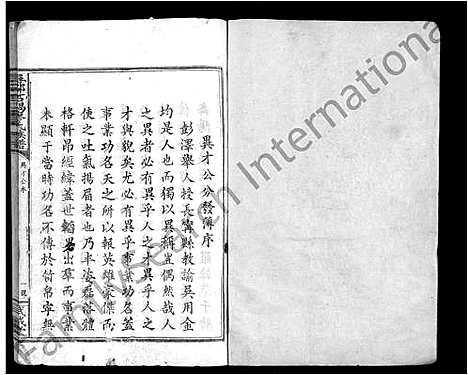 異才公分發傳序
彭澤舉人授長寗縣教諭吳用金
均是人也而獨以異稱豈偶然哉人
之異者必有異乎人之才與貌人之
才與貌矣尤必有異乎事業功名蓋
事業功名天之所以報英雄家傑而
使之吐氣揚眉者也乃丰姿磊落體
格軒昂經緯蓋世韜畧出羣而事業
未顯于當時功名不傳於竹帛寧無
異才公本
FamilySearch International